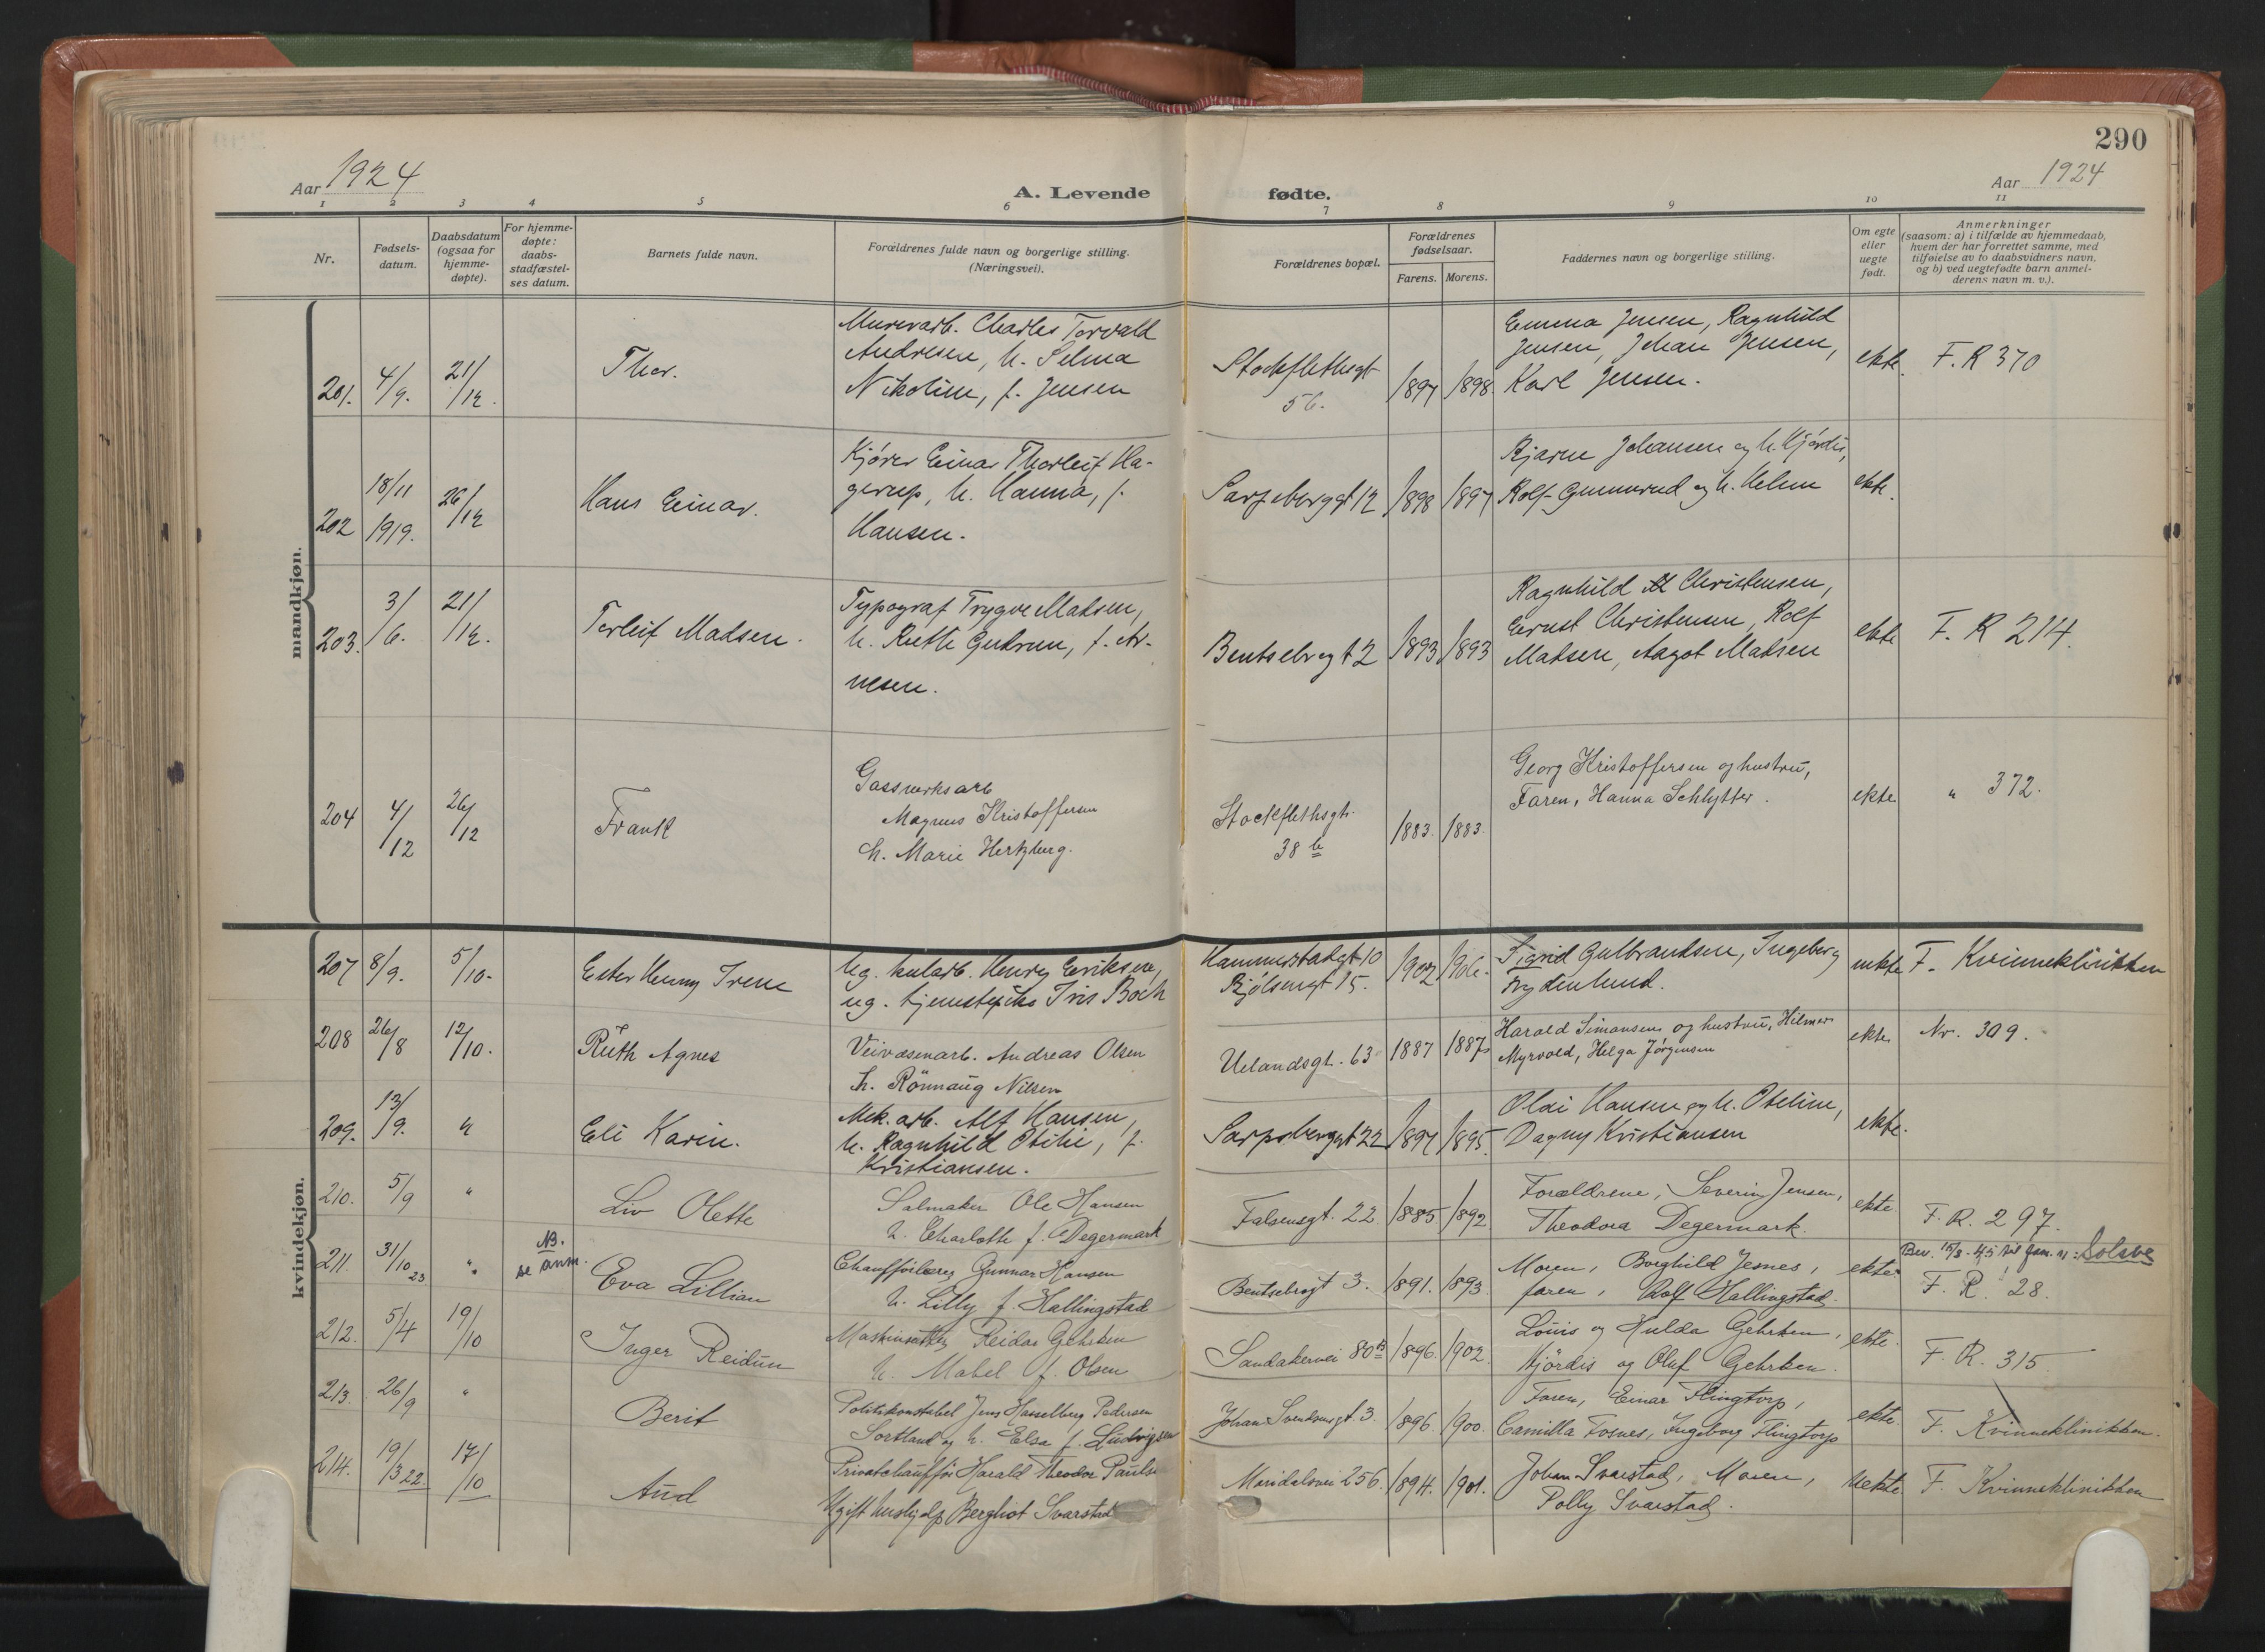 290
Aar 1924
A. Levende fødte.
Aar 1924
1 2 3 4 5 6 7 8 9 10 11
Nr.
Fødsels-
datum.
Daabsdatum
(ogsaa for
hjemme-
døpte).
For hjemme-
døpte:
daabs-
stadfæstel-
ses datum.
Barnets fulde navn.
Forældrenes fulde navn og borgerlige stilling.
(Næringsvei).
Forældrenes bopæl.
Forældrenes
fødselsaar.
Farens. Morens.
Faddernes navn og borgerlige stilling.
Om egte
eller
uegte
født.
Anmerkninger
(saasom: a) i tilfælde av hjemmedaab,
hvem der har forrettet samme, med
tilføielse av to daabsvidners navn,
og b) ved uegtefødte barn anmel-
derens navn m. v.).
mandkjøn.
201. 4/9. 21/12.
Thor.
Murerarb. Charles Torvald
Andresen, h. Selma
Nikoline, f. Jensen
Stockflethsgt
56.
1897 1898.
Emma Jensen, Ragnhild
Jensen, Johan Jensen,
Karl Jensen.
ekte.
F. R 370
202 18/11
1919.
26/12
Hans Einar.
Kjører Einar Thorleif Ha-
gerup, h. Hanna, f.
Hansen.
Sarpsborggt 12
1898 1897
Bjarne Johansen og h. Hjørdis,
Rolf Gummerud og h. Helene
ekte.
203. 3/6. 21/12.
Torleif Madsen.
Typograf Trygve Madsen,
h. Ruth Gudrun, f. Ar-
nesen.
Bentsebrogt 2
1893 1893
Ragnhild Christensen,
Ernst Christensen, Rolf
Madsen, Aagot Madsen
ekte
F. R 214.
204 4/12 26/12
Frank
Gassverksarb
Magnus Kristoffersen
h. Marie Hertzberg.
Stockflethsgt.
38 b
1883. 1883.
Georg Kristoffersen og hustru,
Faren, Hanna Schlytter.
ekte
" 372.
kvindekjøn.
207 8/9. 5/10.
Ester Henny Irene
Ug. kularb. Henry Eriksen,
ug. tjenestepike Iris Boch
Hammerstadgt 10
Bjølsengt 15.
1902 1906.
Sigrid Gulbrandsen, Ingeborg
Frydenlund.
uekte
F. Kvinneklinikken
208 26/8 12/10.
Ruth Agnes
Veivæsenarb. Andreas Olsen
h. Rönnaug Nilsen
Uelandsgt. 63
1887 1887
Harald Simonsen og hustru, Hilmer
Myrvold, Helga Jørgensen
ekte
Nr. 309.
209. 13/9. "
Eli Karin.
Mek. arb. Alf Hansen,
h. Ragnhild Otilie, f.
Kristiansen.
Sarpsborggt 22
1897 1895.
Olai Hansen og h. Oteline,
Dagny Kristiansen
ekte.
210. 5/9 "
Liv Olette
Salmaker Ole Hansen
h. Charlotte f. Degermark
Falsensgt. 22.
1885 1892.
Forældrene, Severin Jensen,
Theodora Degermark.
ekte.
F. R. 297.
211. 31/10 23 "
NB.
se anm.
Eva Lillian
Chaufförlærer Gunnar Hansen
h. Lilly f. Hallingstad
Bentsebrogt 3.
1891. 1893.
Moren, Borghild Jesnes,
faren, Rolf Hallingstad.
ekte
Bev. 15/3-45 til fam. n: Solsve
F. R. 28.
212. 5/4 19/10
Inger Reidun
Maskinsetter Reidar Gehrken
h. Mabel f. Olsen
Sandakervei 80b
1896. 1902.
Louis og Hulda Gehrken,
Hjördis og Oluf Gehrken.
ekte.
F. R. 315
213. 26/9 "
Berit
Politikonstabel Jens Hasselberg Pedersen
Sortland og h. Elsa f. Ludvigsen
Johan Svendsensgt. 3.
1896. 1900.
Faren, Einar Flingtorp,
Camilla Fosnes, Ingeborg Flingtorp
ekte.
F. Kvinneklinikken.
214. 19/3 22. 17/10
Aud
Privatchaufför Harald Theodor Paulse
Ugift hushjelp Bergliot Svarstad
Maridalsvei 256.
1894. 1901.
Johan Svarstad, Moren,
Polly Svarstad.
uekte
F. Kvinneklinikken